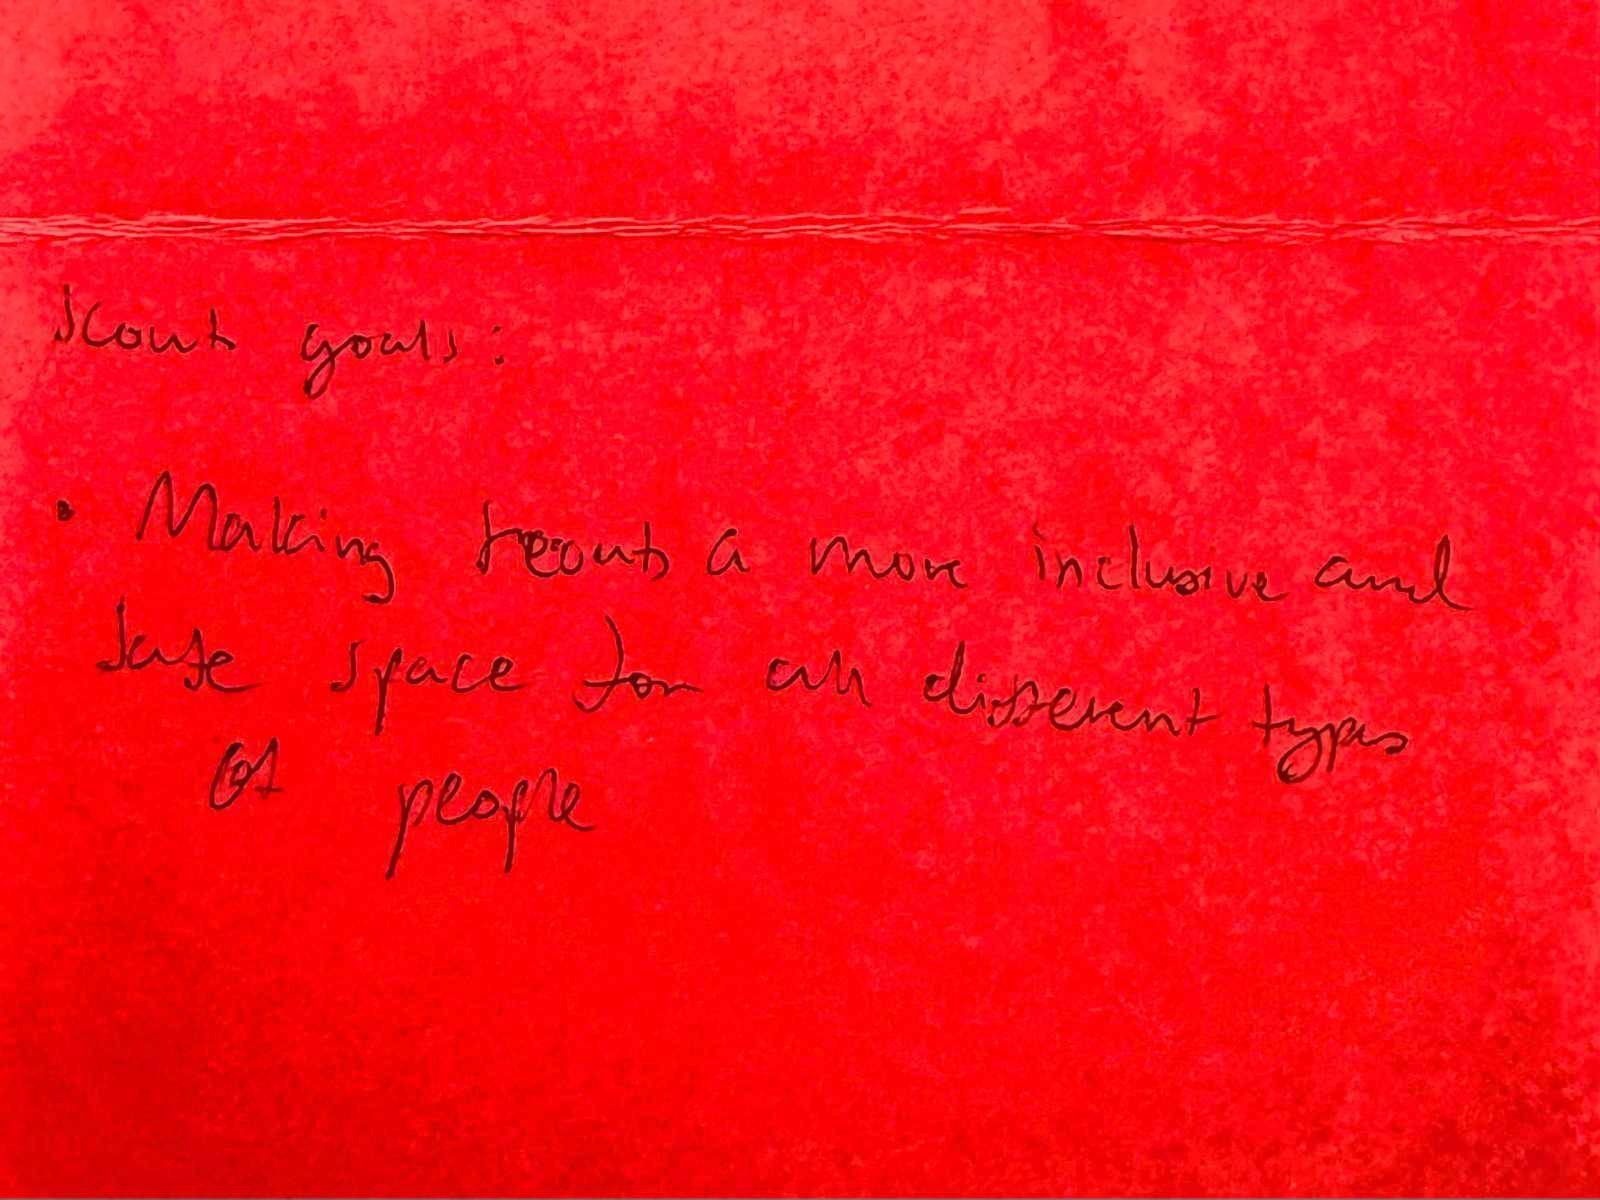 Scouts goals:
• Making scouts a more inclusive and
safe space for all different types
of people